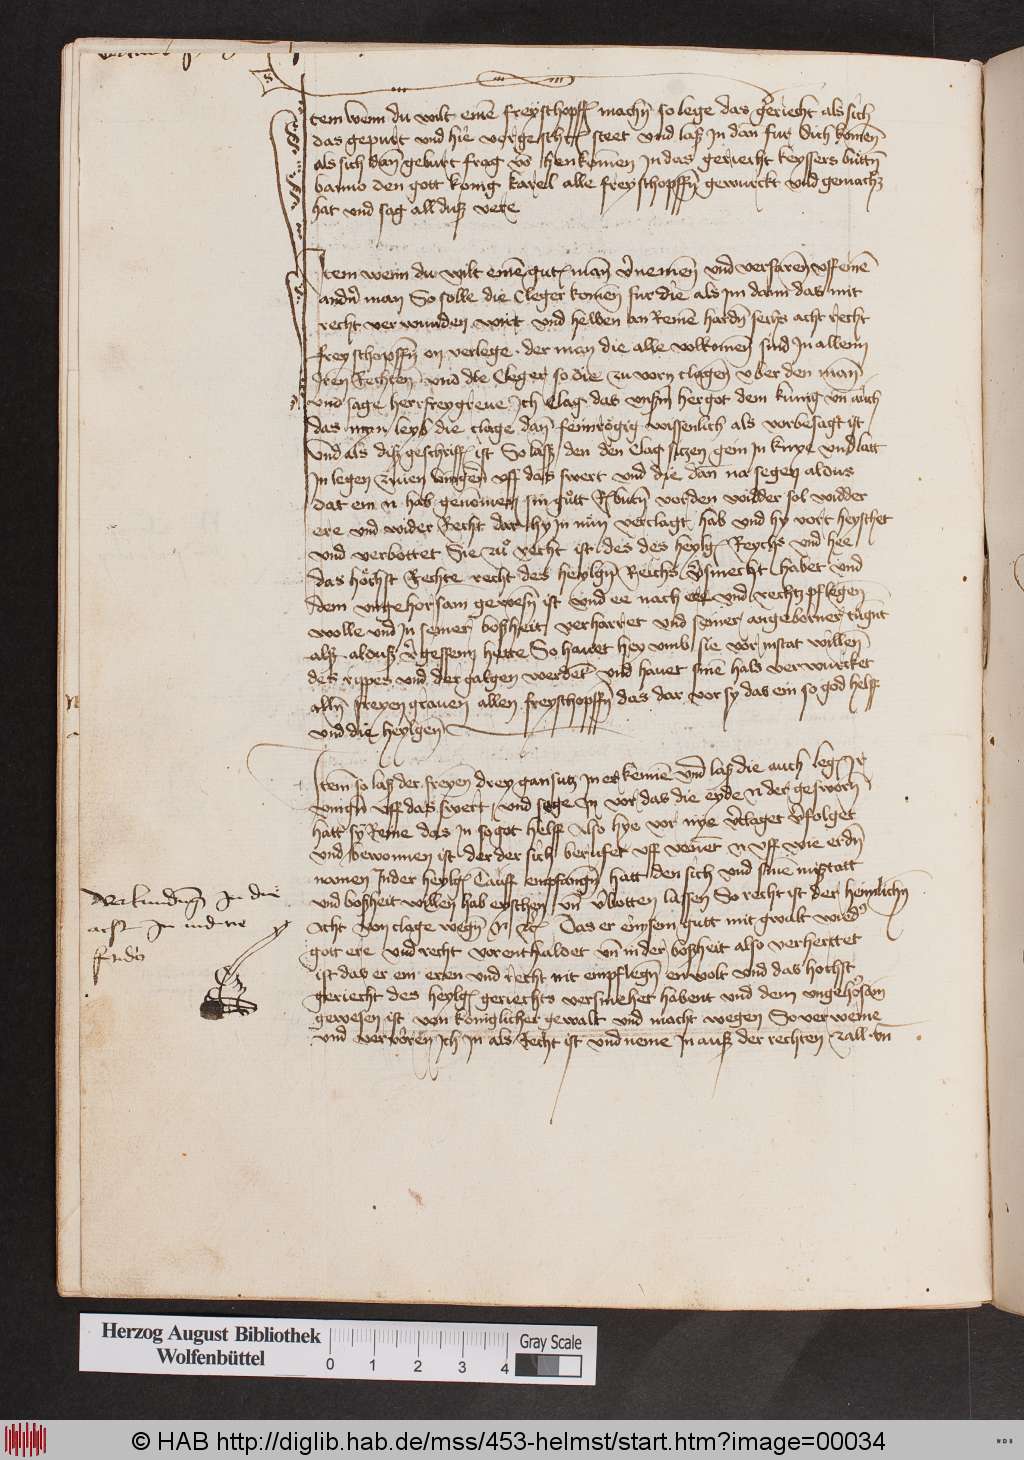 Item wenn du wilt eine freyschopff mach so lege das geriecht als sich
das gepurt vnd hie vorgeschr steet vnd laß jn dan fur dich komen
als sich dan geburt frag wo henkomen in das geriecht keyssers
banno den gott konig karel alle freyschopffn gewurckt vnd gemacht
hat vnd sag all duß vere
Item wenn du wilt eine gut man vernemen vnd verfaren vff eine
andn man So solle die Cleger komen fur die als im dann das mit
recht verwunden wirt vnd helden an Reme hardn sechs acht recht
freyschopffn on verlege der man die alle volkomen sind In allenn
Iren Rechten vnd die Cleger so die zu vorn clagen vber den man
vnd sage herr freygreue Ich Clag das vnserm hergot dem kunig vn auch
das man leyb die clage dan femrogig wissenlich als vorbesagt ist
vnd als diß geschrifft ist So laß den den Clag sitzen gein In knye vnd latt
In legen zwen vingern vff das swert vnd die dan na segen aldus
dat em n hab genomen sin gutt vor den widder sol widder
ere vnd wider Recht dar hy In man verclagt hab vnd hy vort heyschet
vnd verbottet Sie zu recht ist des des heylg Reychs vnd hee
das hochst Rechte recht des heylgn Reichs versmecht habet vnd
dem vngehorsam gewesn ist vnd ee nach ere vnd rechtz pflegen
wolle vnd In seiner boßheit verharret vnd seiner angeborner tugnt
alß alduß vergessenn hette So hauet hey vmb sie vor mstat willen
des rippes vnd der galgen werdet vnd hauet sine hals verwurcket
alln freyen grauen allen freyschopffn das dar vor sy das ein so god helff
vnd die heylgen
Item so laß der freyen drey gansutz In erkennen vnd laß die auch leg Ir
vingn vff das swert vnd sege In vor das die eyde n der gesworn
hatt sy Reme das In so got helff Also hye vor nye verclaget verfolget
vnd bewonnen ist der der sich berufet vff vonet n vff wie er dn
namen In der heylg Tauff empfangn hatt den sich vnd sine mißtatt
vnd boßheit willen hab eyschen vn verbotten lassen So recht ist der heimlichn
Acht von clage wegn N Das er eynsem gutt mit gwalt wieder
gott ere vnd recht vorenthaldet vn in der boßheit also verherttet
ist das er ein eren vnd recht nit empflegn en wolt vnd das hochst
geriecht des heylg geriechts versmehet habent vnd dem vngehorsam
gewesen ist von koniglicher gewalt vnd macht wegen So verweme
vnd verworen Ich In als Recht ist vnd neme In auß der rechten zall vn
Verkundung In die
acht In
fridn
Herzog August Bibliothek
Wolfenbüttel
0 1 2 3 4
Gray Scale
© HAB http://diglib.hab.de/mss/453-helmst/start.htm?image=00034